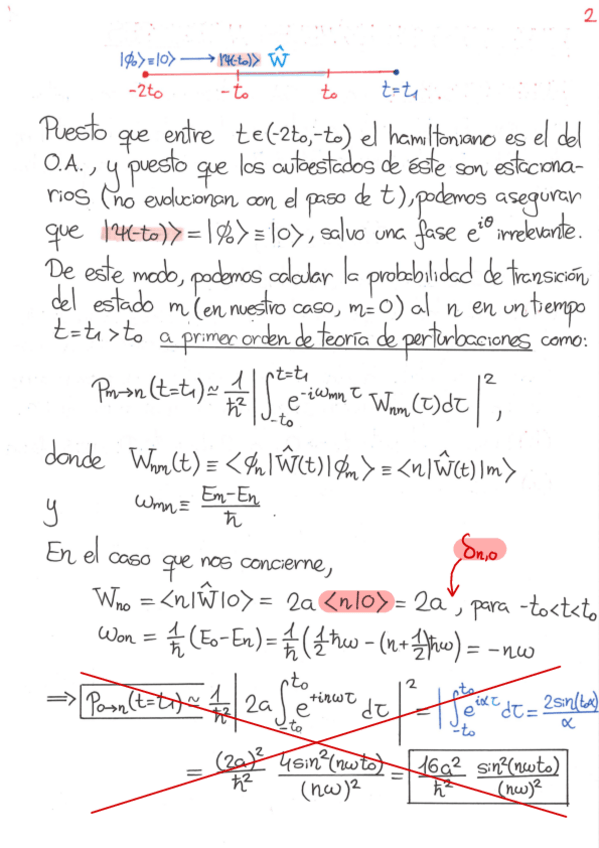 2
|ϕ₀⟩≡|0⟩ ⟶ |Ψ(-t₀)⟩ Ŵ
-2t₀ -t₀ t₀ t=t₁
Puesto que entre t∈(-2t₀,-t₀) el hamiltoniano es el del
O.A., y puesto que los autoestados de éste son estaciona-
rios (no evolucionan con el paso de t), podemos asegurar
que |Ψ(-t₀)⟩ = |ϕ₀⟩ ≡ |0⟩, salvo una fase e^{iθ} irrelevante.
De este modo, podemos calcular la probabilidad de transición
del estado m (en nuestro caso, m=0) al n en un tiempo
t=t₁>t₀ a primer orden de teoría de perturbaciones como:
P_{m→n}(t=t₁) ≃ \frac{1}{ħ²} |∫_{-t₀}^{t=t₁} e^{-iω_{mn}τ} W_{nm}(τ)dτ|²,
donde W_{nm}(t) ≡ ⟨ϕₙ|Ŵ(t)|ϕₘ⟩ ≡ ⟨n|Ŵ(t)|m⟩
y ω_{mn} ≡ \frac{Eₘ-Eₙ}{ħ}.
En el caso que nos concierne,
δ_{n,0}
W_{n0} = ⟨n|Ŵ|0⟩ = 2a ⟨n|0⟩ = 2a , para -t₀<t<t₀
ω_{0n} = \frac{1}{ħ}(E₀-Eₙ) = \frac{1}{ħ}(\frac{1}{2}ħω - (n+\frac{1}{2})ħω) = -nω
⟹ P_{0→n}(t=t₁) ≃ \frac{1}{ħ²} |2a ∫_{-t₀}^{t₀} e^{+inωτ} dτ|² = |∫_{-t₀}^{t₀} e^{iατ} dτ = \frac{2sin(t₀α)}{α}
= \frac{(2a)²}{ħ²} \frac{4sin²(nωt₀)}{(nω)²} = \frac{16a²}{ħ²} \frac{sin²(nωt₀)}{(nω)²}